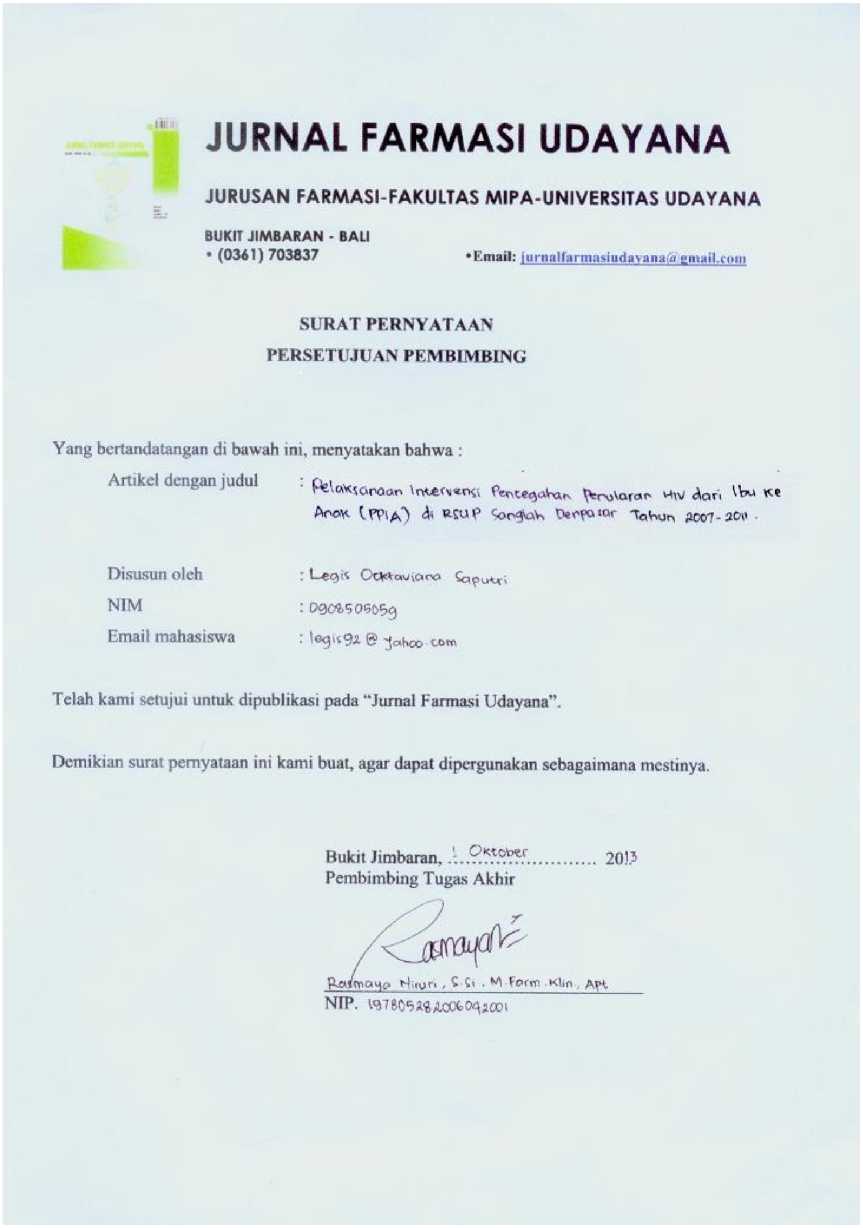 JURNAL FARMASI UDAYANA
JURUSAN FARMASI-FAKULTAS MIPA-UNIVERSITAS UDAYANA
BUKIT JIMBARAN - BALI
• (0361) 703837 •Email: jurnalfarmasiudayana@gmail.com
SURAT PERNYATAAN
PERSETUJUAN PEMBIMBING
Yang bertandatangan di bawah ini, menyatakan bahwa :
Artikel dengan judul : Pelaksanaan Intervensi Pencegahan Penularan HIV dari Ibu ke
Anak (PPIA) di RSUP Sanglah Denpasar Tahun 2007-2011.
Disusun oleh : Legis Ocktaviana Saputri
NIM : 0908505059
Email mahasiswa : legis92@yahoo.com
Telah kami setujui untuk dipublikasi pada “Jurnal Farmasi Udayana”.
Demikian surat pernyataan ini kami buat, agar dapat dipergunakan sebagaimana mestinya.
Bukit Jimbaran, 1 Oktober 2013
Pembimbing Tugas Akhir
Rasmaya Niruri, S.Si., M.Farm.Klin., Apt
NIP. 197805282006042001